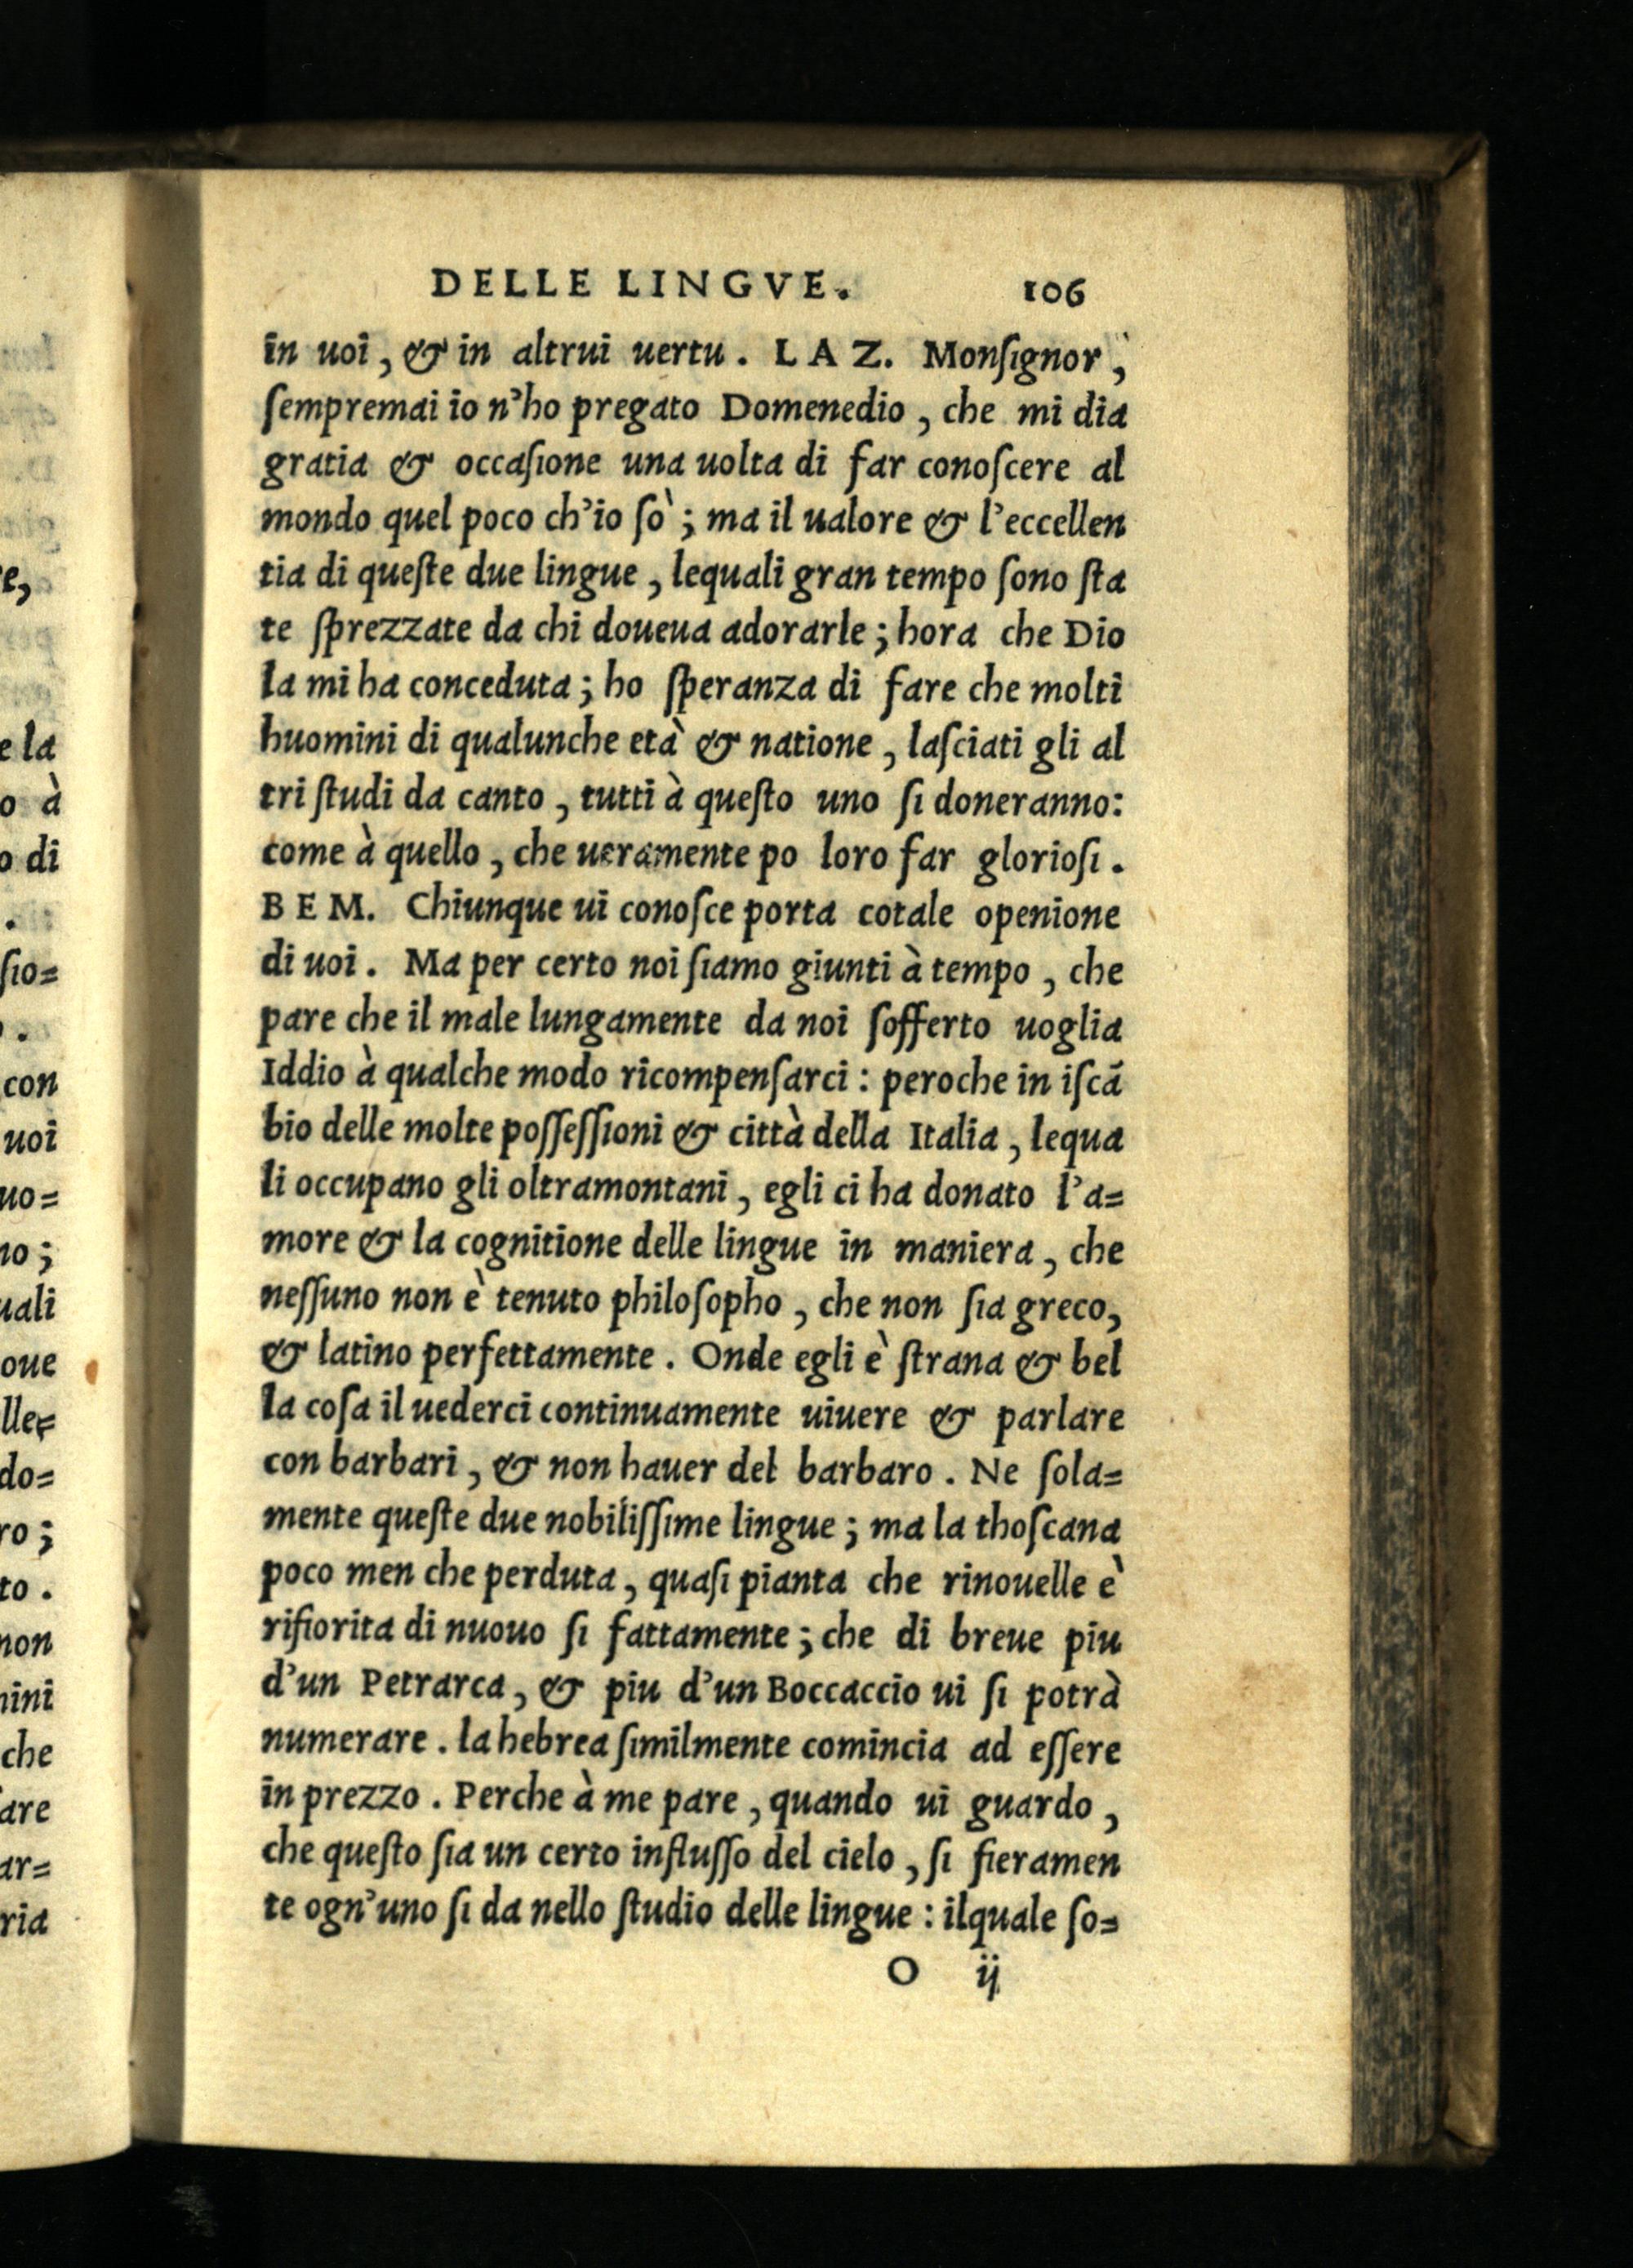 DELLE LINGVE. 106
in uoi, & in altrui uertu. LAZ. Monſignor,
ſempremai io n'ho pregato Domenedio, che mi dia
gratia & occaſione una uolta di far conoſcere al
mondo quel poco ch'io ſò; ma il ualore & l'eccellen
tia di queſte due lingue, lequali gran tempo ſono ſta
te ſprezzate da chi doueua adorarle; hora che Dio
la mi ha conceduta; ho ſperanza di fare che molti
huomini di qualunche età & natione, laſciati gli al
tri ſtudi da canto, tutti à queſto uno ſi doneranno:
come à quello, che ueramente po loro far glorioſi.
BEM. Chiunque ui conoſce porta cotale openione
di uoi. Ma per certo noi ſiamo giunti à tempo, che
pare che il male lungamente da noi ſofferto uoglia
Iddio à qualche modo ricompenſarci: peroche in iſcā
bio delle molte poſſeſſioni & città della Italia, lequa
li occupano gli oltramontani, egli ci ha donato l'a=
more & la cognitione delle lingue in maniera, che
neſſuno non è tenuto philoſopho, che non ſia greco,
& latino perfettamente. Onde egli è ſtrana & bel
la coſa il uederci continuamente uiuere & parlare
con barbari, & non hauer del barbaro. Ne ſola=
mente queſte due nobiliſſime lingue; ma la thoſcana
poco men che perduta, quaſi pianta che rinouelle è
rifiorita di nuouo ſi fattamente; che di breue piu
d'un Petrarca, & piu d'un Boccaccio ui ſi potrà
numerare. la hebrea ſimilmente comincia ad eſſere
in prezzo. Perche à me pare, quando ui guardo,
che queſto ſia un certo influſſo del cielo, ſi fieramen
te ogn'uno ſi da nello ſtudio delle lingue: ilquale ſo=
O ij